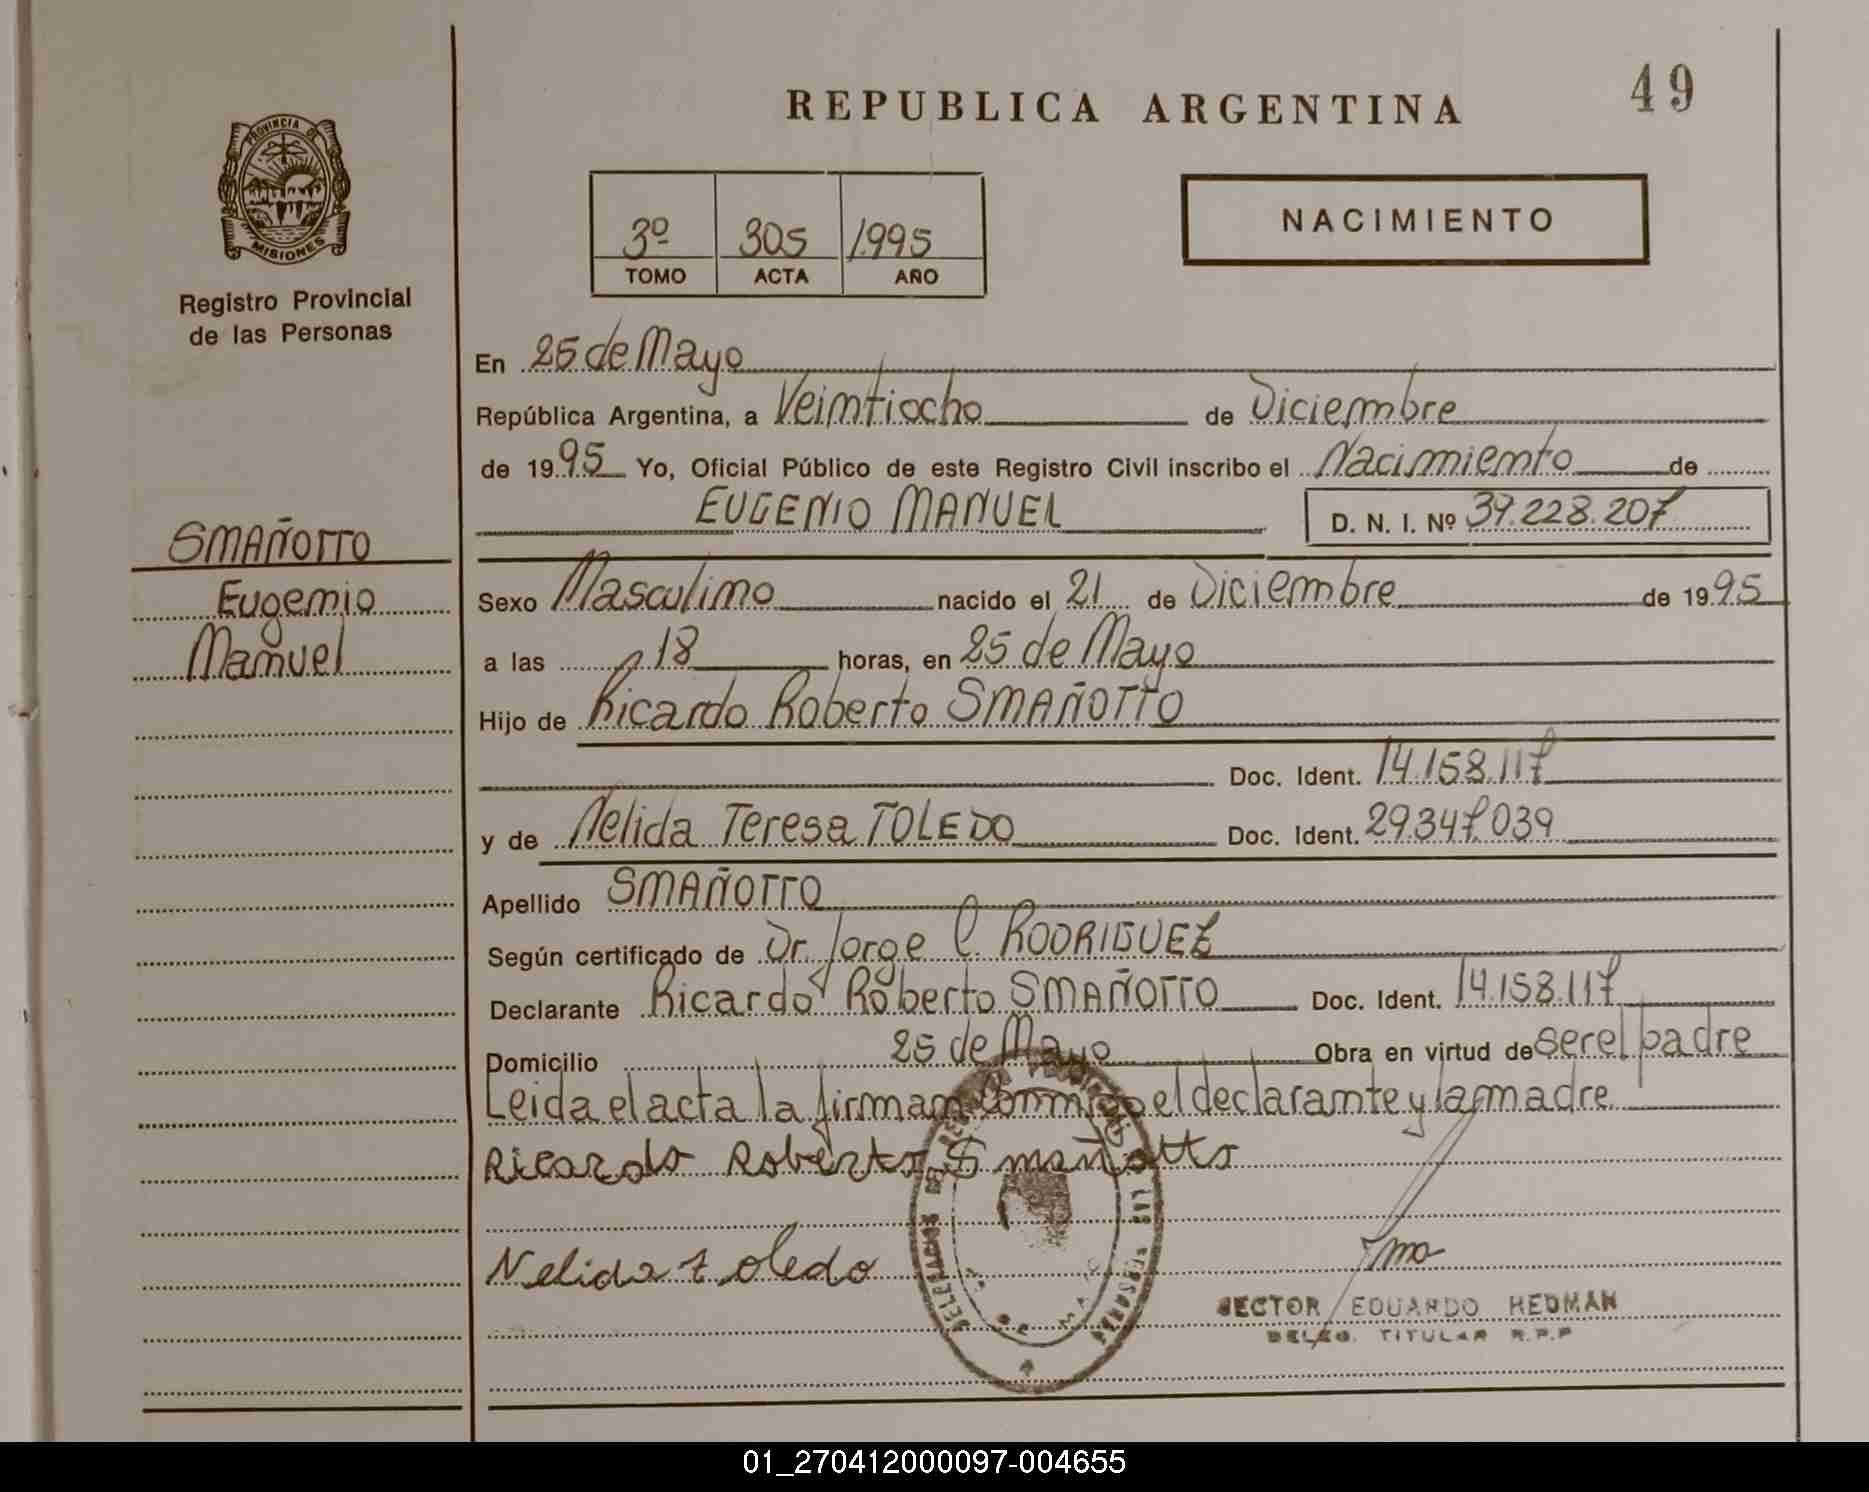 49
REPUBLICA ARGENTINA
PROVINCIA DE
MISIONES
Registro Provincial
de las Personas
3º 305 1995
TOMO ACTA AÑO
NACIMIENTO
En 25 de Mayo
República Argentina, a Veintiocho de Diciembre
de 1995 Yo, Oficial Público de este Registro Civil inscribo el Nacimiento de
EUGENIO MANUEL D. N. I. Nº 39.228.207
SMAÑOTTO
Eugenio
Manuel
Sexo Masculino nacido el 21 de Diciembre de 1995
a las 18 horas, en 25 de Mayo
Hijo de Ricardo Roberto SMAÑOTTO
Doc. Ident. 14.158.117
y de Nelida Teresa TOLEDO Doc. Ident. 29.347.039
Apellido SMAÑOTTO
Según certificado de Dr. Jorge C. RODRIGUEZ
Declarante Ricardo Roberto SMAÑOTTO Doc. Ident. 14.158.117
Domicilio 25 de Mayo Obra en virtud de ser el padre
Leida el acta la firman conmigo el declarante y la madre
Ricardo Roberto Smañotto
Nelida toledo
HECTOR EDUARDO HEDMAN
DELEG. TITULAR R.P.P
01_270412000097-004655